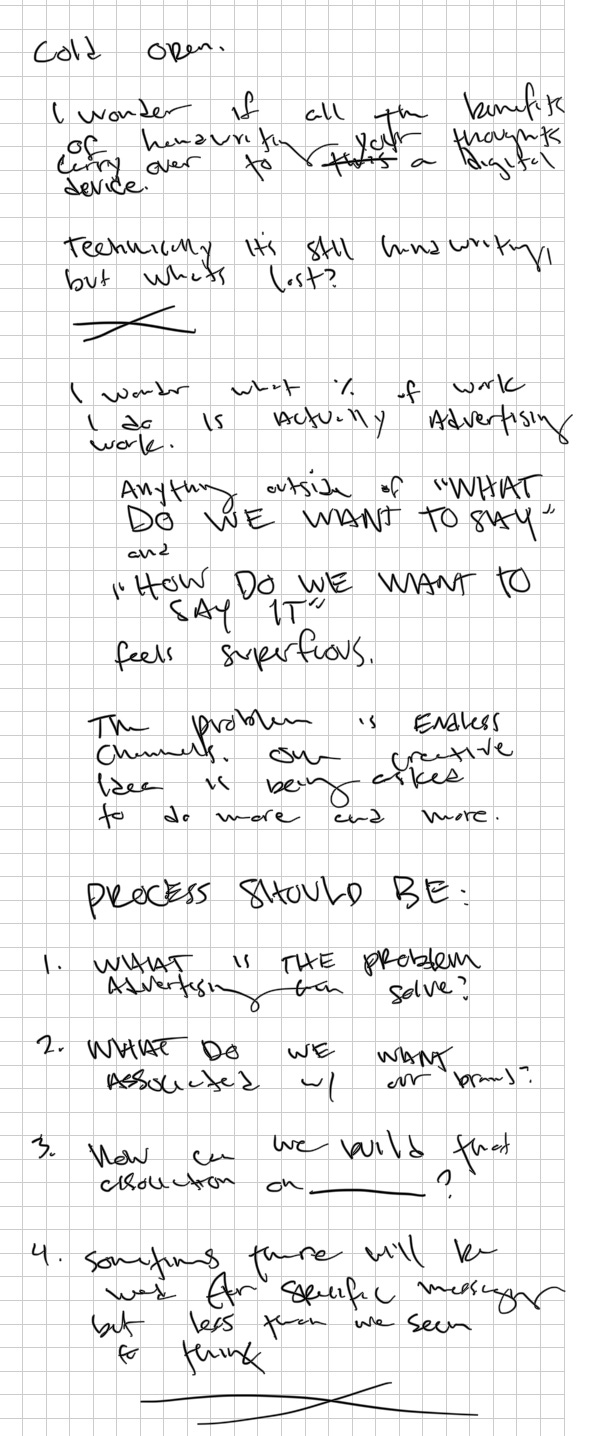 Cold open.
I wonder if all the benefits
of handwriting your thoughts
carry over to this a digital
device.
Technically it's still handwriting,
but what's lost?
I wonder what % of work
I do is actually Advertising
work.
Anything outside of "WHAT
DO WE WANT TO SAY"
and
"HOW DO WE WANT TO
SAY IT"
feels superflous.
The problem is ENDLESS
Channels. Our creative
Idea is being asked
to do more and more.
PROCESS SHOULD BE:
1. WHAT is THE problem
Advertising can solve?
2. WHAT DO WE WANT
ASSOCIATED w/ our brand?
3. How can we build that
association on ______ ?
4. Sometimes there will be
need for specific messages
but less than we seem
to think